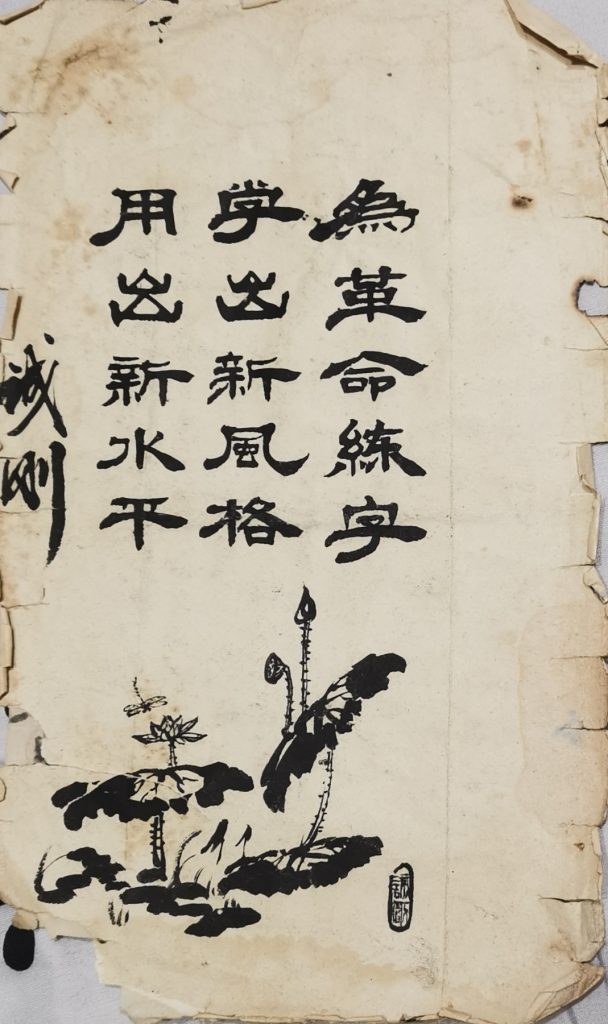 為革命練字
学出新風格
用出新水平
诚刚